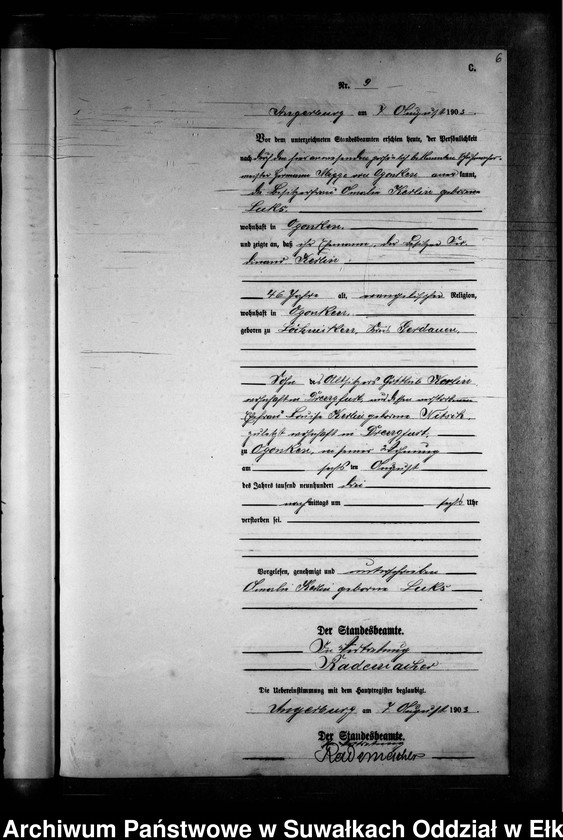 6
C.
Nr. 9
Angerburg am 7 August 1903.
Vor dem unterzeichneten Standesbeamten erschien heute, der Persönlichkeit
nach durch den hier anwesenden persönlich bekannten
Hermann von Ogonken anerkannt,
die Besitzerfrau Amalie Karlin geborene
Luks.
wohnhaft in Ogonken.
und zeigte an, daß ihr Ehemann, der Besitzer Fer-
dinand Karlin
46 Jahre alt, evangelischer Religion,
wohnhaft in Ogonken,
geboren zu Kreis Gerdauen,
Sohn des Altsitzers Gottlieb Karlin
wohnhaft in Drengfurt und dessen verstorbenen
Ehefrau Louise Karlin geborene
zuletzt wohnhaft in Drengfurt.
zu Ogonken, in seiner Wohnung
am sechsten August
des Jahres tausend neunhundert drei
nachmittags um sechs Uhr
verstorben sei.
Vorgelesen, genehmigt und unterschrieben
Amalie Karlin geborene Luks
Der Standesbeamte.
In Vertretung
Rademacher
Die Uebereinstimmung mit dem Hauptregister beglaubigt.
Angerburg am 7 August 1903
Der Standesbeamte.
In Vertretung
Rademacher
Archiwum Państwowe w Suwałkach Oddział w Ełk